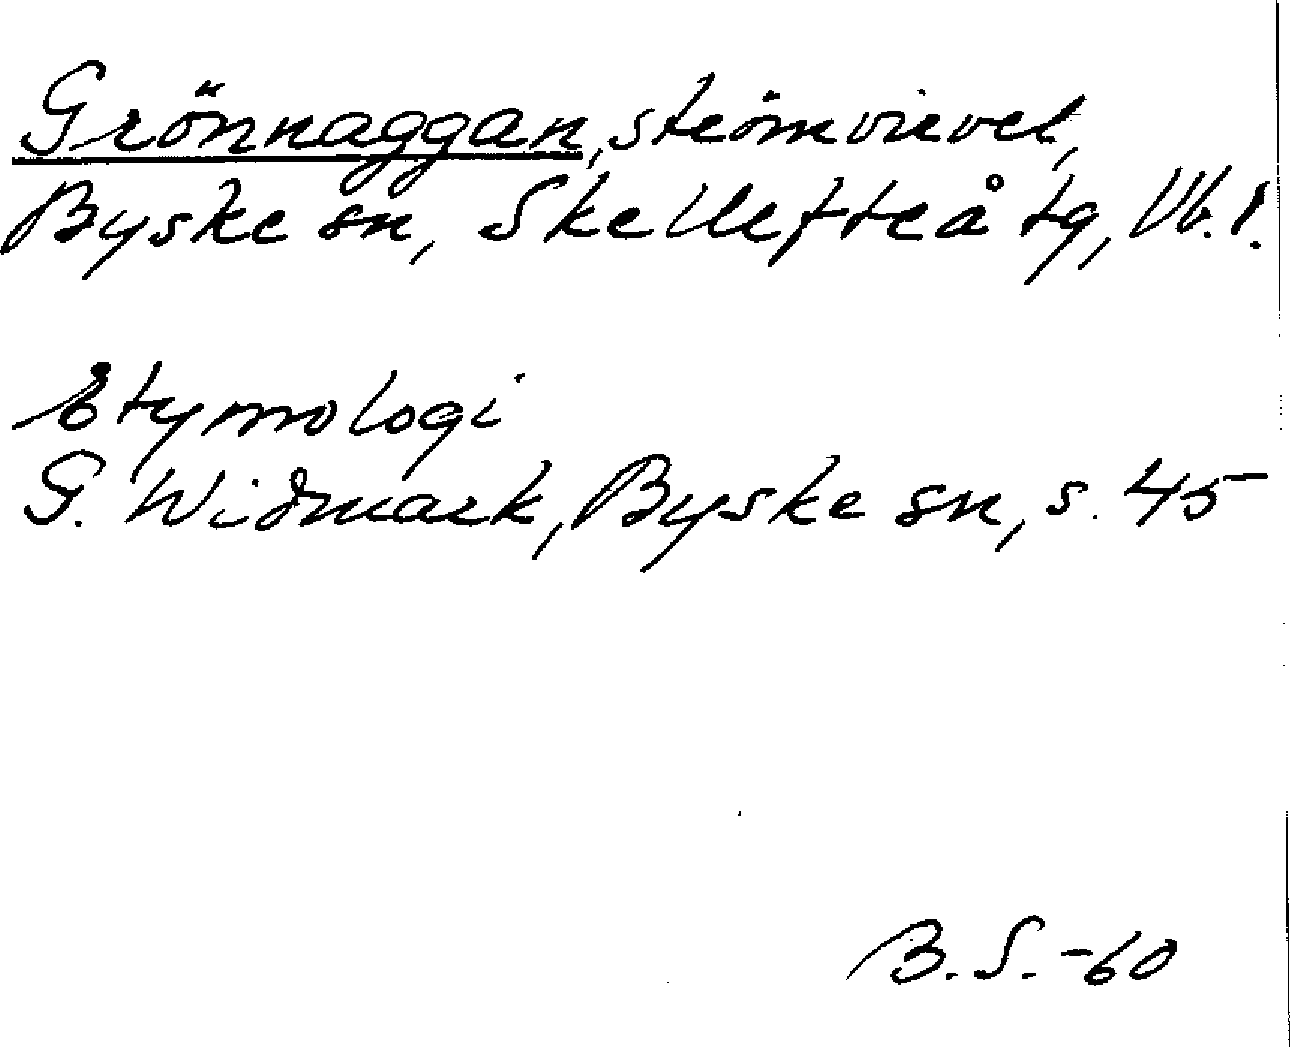 Grönnaggan, strömvirvel,
Byske sn, Skellefteå tg, Vb.l.
Etymologi
G. Widmark, Byske sn, s. 45
B.S. -60